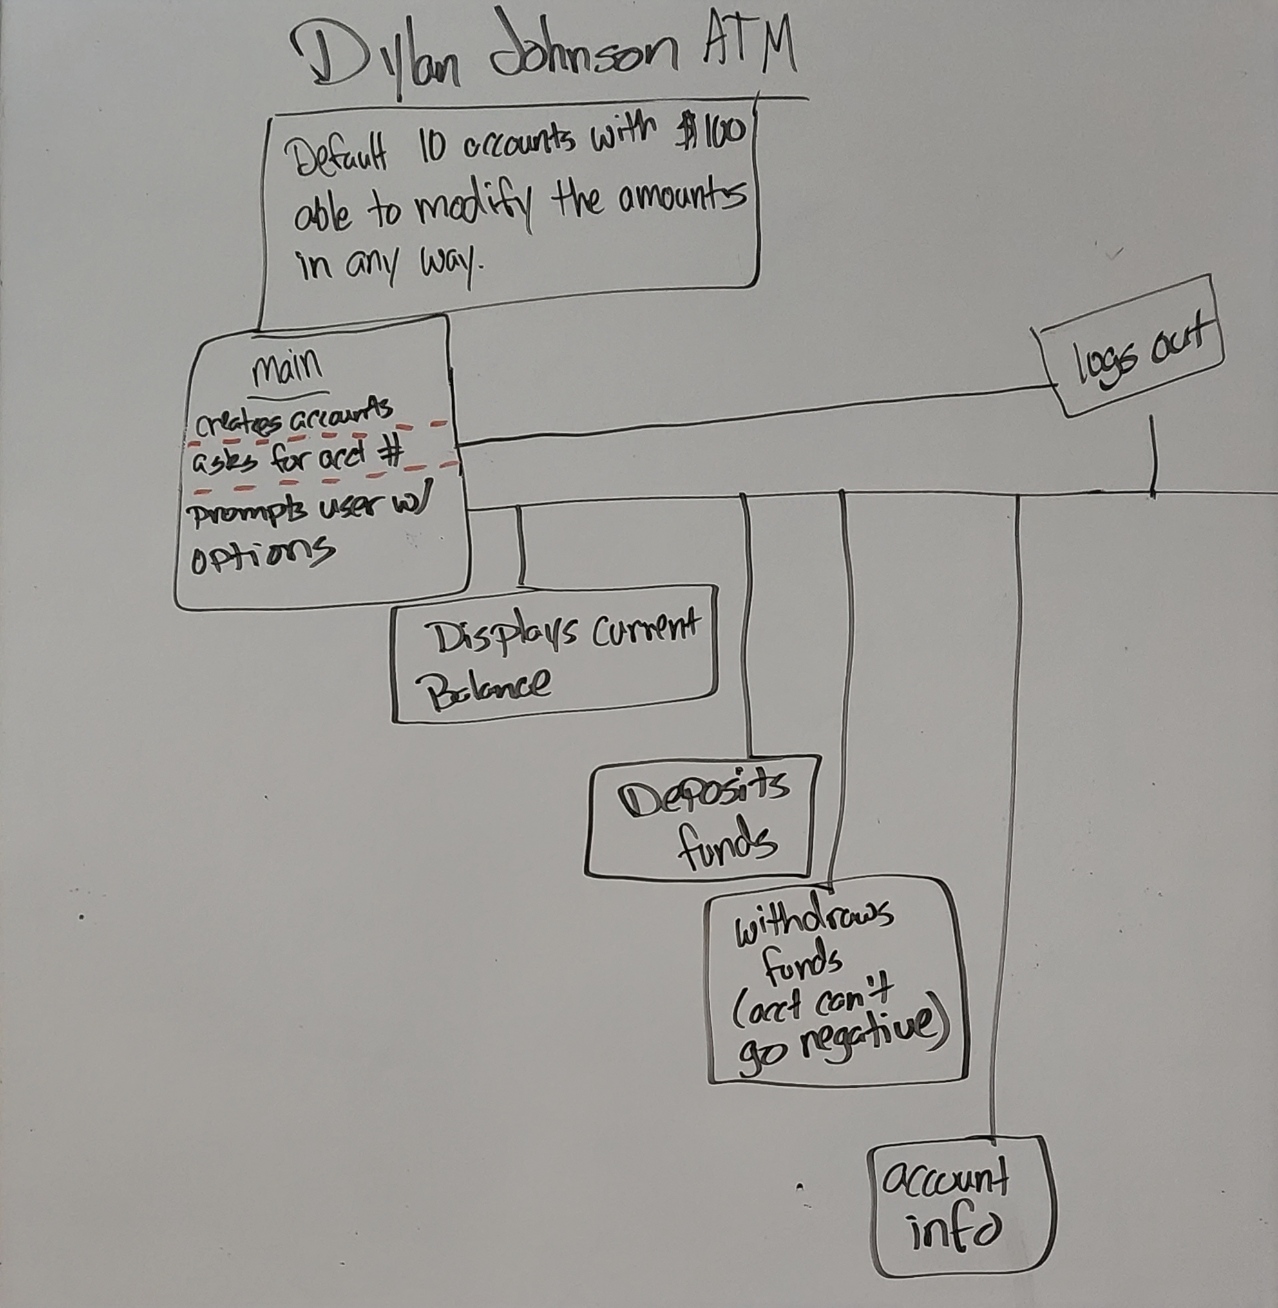 Dylan Johnson ATM
Default 10 accounts with $100
able to modify the amounts
in any way.
main
creates accounts
asks for acct #
prompts user w/
options
logs out
Displays current
Balance
Deposits
funds
withdraws
funds
(acct can't
go negative)
account
info